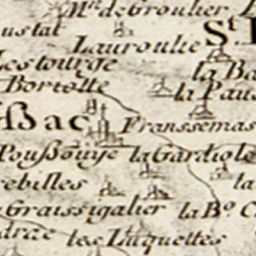 Mrs de Groulier
Lauroulie St
Les tourge
la Ba
Bortolle
la Paus
ßac
Franssemas
Poußouye la Gardiole
rebilles la
Graissigalier la Bo. C
les Luquettes